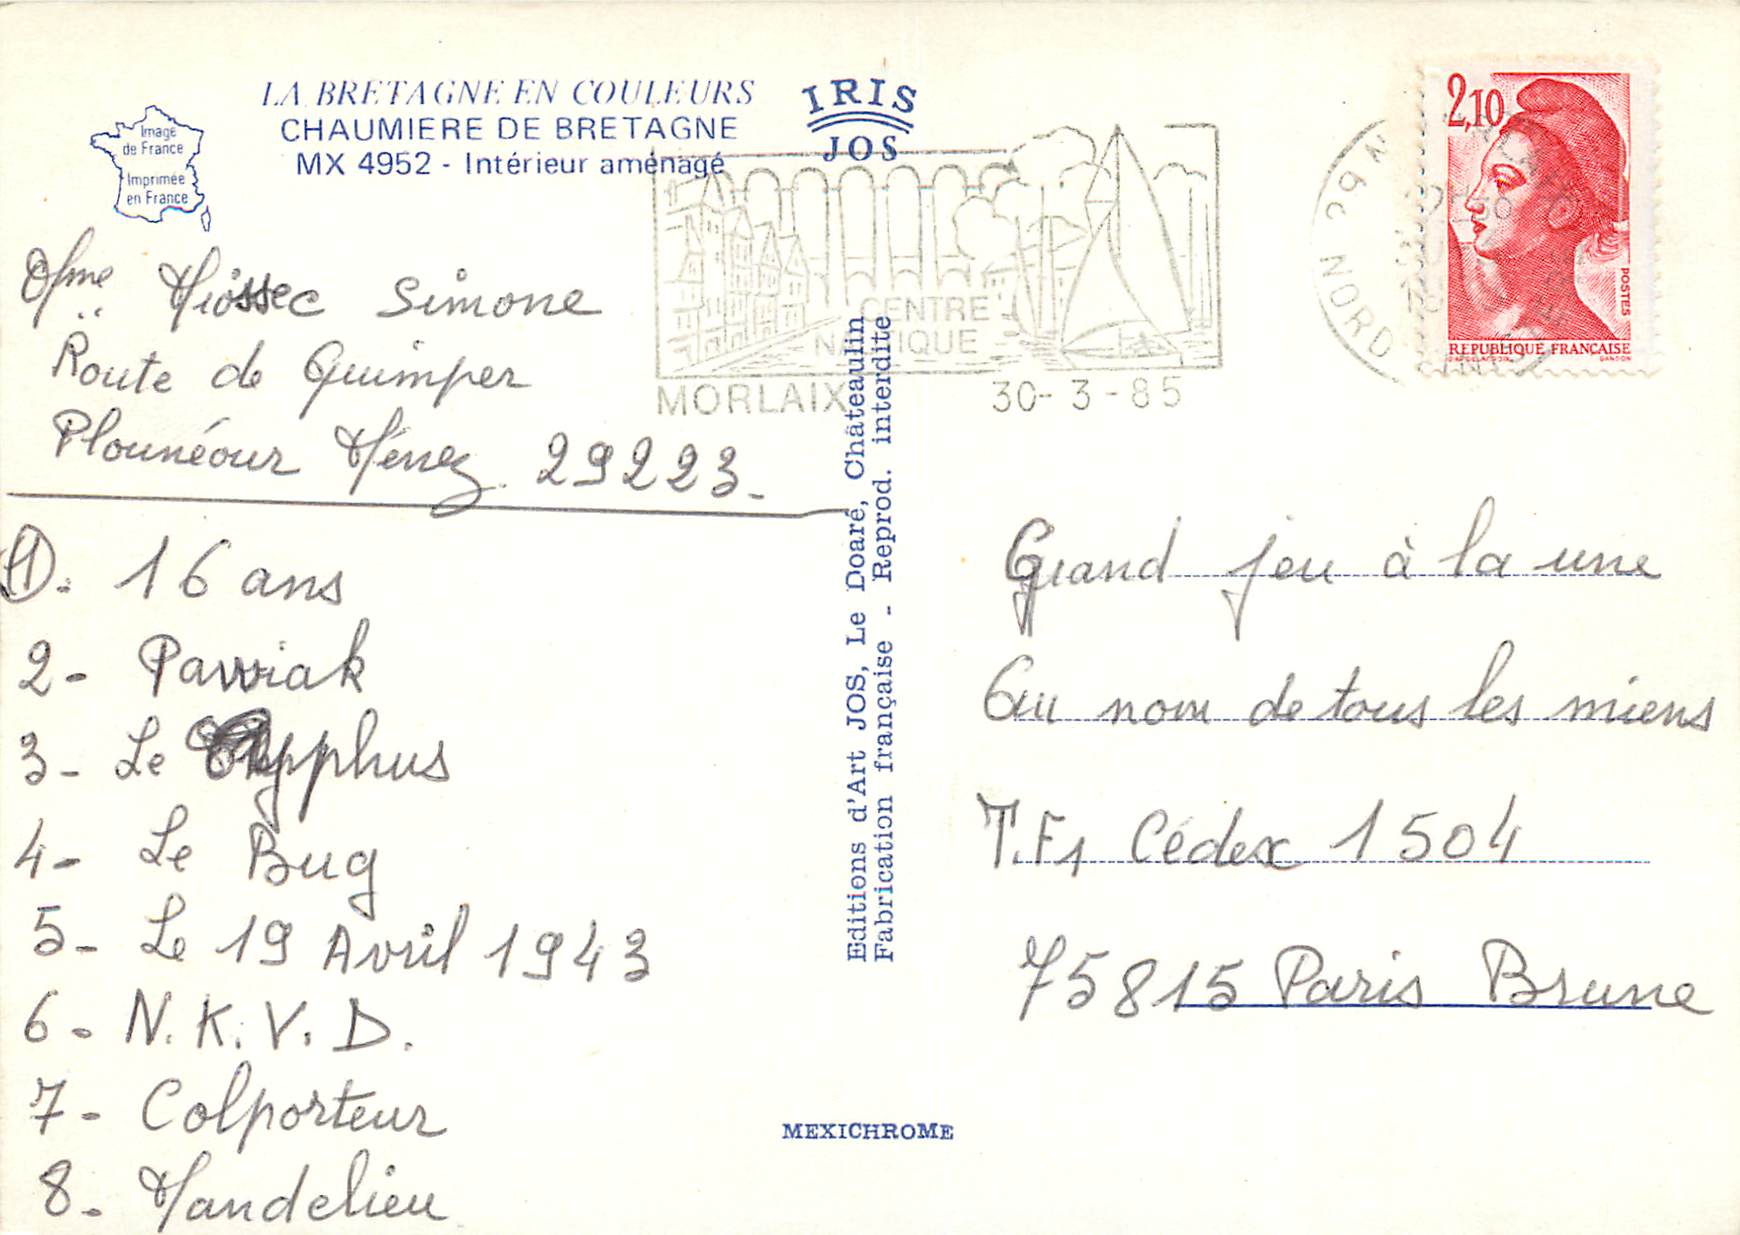 LA BRETAGNE EN COULEURS
CHAUMIERE DE BRETAGNE
MX 4952 - Intérieur aménagé
Image
de France
Imprimée
en France
IRIS
JOS
CENTRE
NAUTIQUE
MORLAIX
30-3-85
29 N
NORD
2,10
POSTES
REPUBLIQUE FRANÇAISE
GANDON
Mme Miossec Simone
Route de Quimper
Plounéour Ménez 29223-
1. 16 ans
2- Pawiak
3- Le Typphus
4- Le Bug
5- Le 19 Avril 1943
6- N.K.V.D.
7- Colporteur
8- Mandelieu
Editions d'Art JOS, Le Doaré, Châteaulin
Fabrication française - Reprod. interdite
Grand jeu à la une
Au nom de tous les miens
T.F1 Cédex 1504
75815 Paris Brune
MEXICHROME